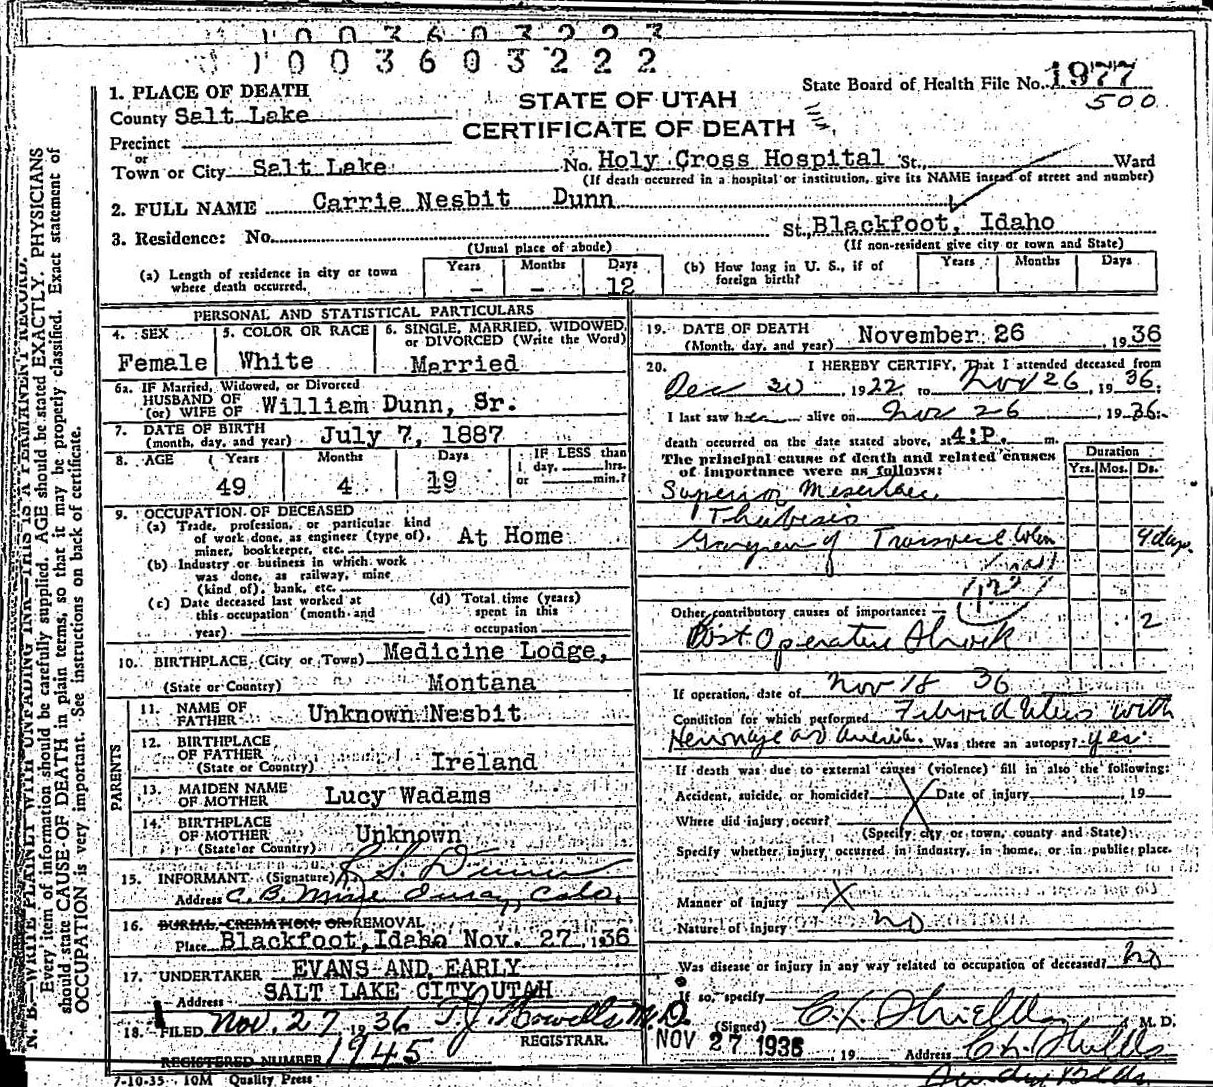 1003603223
1003603222
State Board of Health File No. 1977
500
1. PLACE OF DEATH
County Salt Lake
STATE OF UTAH
CERTIFICATE OF DEATH
Precinct
or
Town or City Salt Lake No. Holy Cross Hospital St. Ward
(If death occurred in a hospital or institution, give its NAME instead of street and number)
2. FULL NAME Carrie Nesbit Dunn
3. Residence: No. St., Blackfoot, Idaho
(Usual place of abode) (If non-resident give city or town and State)
(a) Length of residence in city or town where death occurred. Years - Months - Days 12
(b) How long in U. S., if of foreign birth? Years Months Days
PERSONAL AND STATISTICAL PARTICULARS
4. SEX Female
5. COLOR OR RACE White
6. SINGLE, MARRIED, WIDOWED, or DIVORCED (Write the Word) Married
6a. IF Married, Widowed, or Divorced
HUSBAND OF
(or) WIFE OF William Dunn, Sr.
7. DATE OF BIRTH
(month, day, and year) July 7, 1887
8. AGE Years 49 Months 4 Days 19 IF LESS than 1 day, hrs. or min.?
9. OCCUPATION OF DECEASED
(a) Trade, profession, or particular kind
of work done, as engineer (type of),
miner, bookkeeper, etc. At Home
(b) Industry or business in which work
was done, as railway, mine
(kind of), bank, etc.
(c) Date deceased last worked at
this occupation (month and
year)
(d) Total time (years)
spent in this
occupation
10. BIRTHPLACE (City or Town) Medicine Lodge,
(State or Country) Montana
PARENTS
11. NAME OF FATHER Unknown Nesbit
12. BIRTHPLACE OF FATHER
(State or Country) Ireland
13. MAIDEN NAME OF MOTHER Lucy Wadams
14. BIRTHPLACE OF MOTHER
(State or Country) Unknown
15. INFORMANT (Signature) R. S. Dunn
Address Ouray, Colo.
16. BURIAL, CREMATION, OR REMOVAL
Place Blackfoot, Idaho Nov. 27, 1936
17. UNDERTAKER EVANS AND EARLY
Address SALT LAKE CITY UTAH
18. FILED Nov. 27, 1936 T. J. Howells M.D.
REGISTRAR.
REGISTERED NUMBER 1945
7-10-35 10M Quality Press
19. DATE OF DEATH
(Month, day, and year) November 26, 1936
20. I HEREBY CERTIFY, That I attended deceased from
Dec 30 1922 to Nov 26, 1936.
I last saw her alive on Nov 26, 1936.
death occurred on the date stated above, at 4:P. m.
The principal cause of death and related causes
of importance were as follows:
Duration
Yrs. Mos. Ds.
Superior Mesenteric
Thrombosis
Gangrene of Transverse Colon 9 days.
122
Other contributory causes of importance:
Post Operative Shock 2
If operation, date of Nov 18 36
Condition for which performed Fibroid Uterus with
Hemorrhage and Anemia. Was there an autopsy? yes
If death was due to external causes (violence) fill in also the following:
Accident, suicide, or homicide? Date of injury 19
Where did injury occur?
(Specify city or town, county and State)
Specify whether injury occurred in industry, in home, or in public place.
Manner of injury
Nature of injury no
Was disease or injury in any way related to occupation of deceased? no
If so, specify
(Signed) C. L. Shields M. D.
NOV 27 1936, 19 Address
N. B.—WRITE PLAINLY WITH UNFADING INK—THIS IS A PERMANENT RECORD.
Every item of information should be carefully supplied. AGE should be stated EXACTLY. PHYSICIANS
should state CAUSE OF DEATH in plain terms, so that it may be properly classified. Exact statement of
OCCUPATION is very important. See instructions on back of certificate.